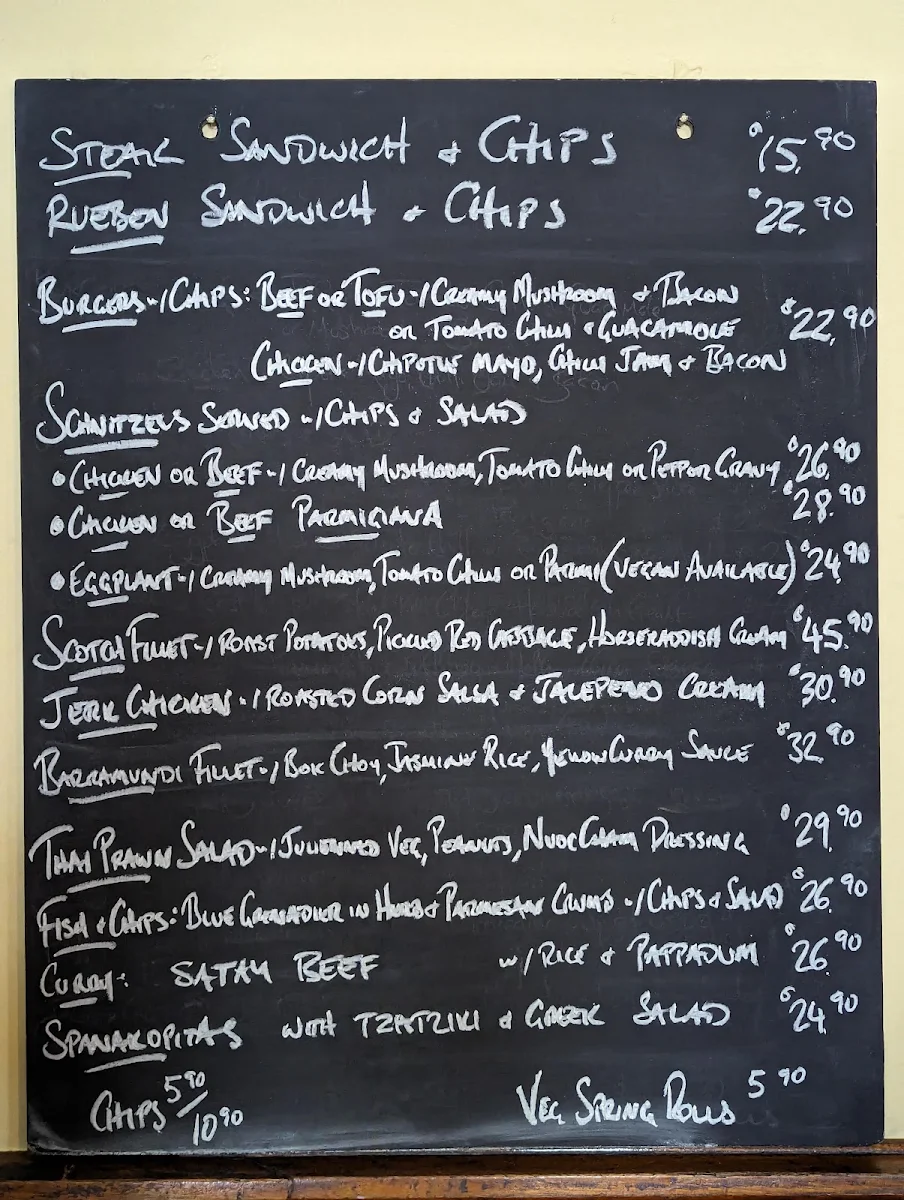 STEAK SANDWICH & CHIPS $15.90
RUEBEN SANDWICH & CHIPS $22.90
BURGERS w/ CHIPS: BEEF OR TOFU w/ CREAMY MUSHROOM & BACON
OR TOMATO CHILLI & GUACAMOLE $22.90
CHICKEN w/ CHIPOTLE MAYO, CHILLI JAM & BACON
SCHNITZELS SERVED w/ CHIPS & SALAD
• CHICKEN OR BEEF w/ CREAMY MUSHROOM, TOMATO CHILLI OR PEPPER GRAVY $26.90
• CHICKEN OR BEEF PARMIGIANA $28.90
• EGGPLANT w/ CREAMY MUSHROOM, TOMATO CHILLI OR PARMI (VEGAN AVAILABLE) $24.90
SCOTCH FILLET w/ ROAST POTATOES, PICKLED RED CABBAGE, HORSERADDISH CREAM $45.90
JERK CHICKEN w/ ROASTED CORN SALSA & JALEPENO CREAM $30.90
BARRAMUNDI FILLET w/ BOK CHOY, JASMINE RICE, YELLOW CURRY SAUCE $32.90
THAI PRAWN SALAD w/ JULIENNED VEG, PEANUTS, NUOC CHAM DRESSING $29.90
FISH & CHIPS: BLUE GRENADIER IN HERB & PARMESAN CRUMB w/ CHIPS & SALAD $26.90
CURRY: SATAY BEEF w/ RICE & PAPPADUM $26.90
SPANAKOPITAS WITH TZATZIKI & GREEK SALAD $24.90
CHIPS 5.90/10.90 VEG SPRING ROLLS 5.90